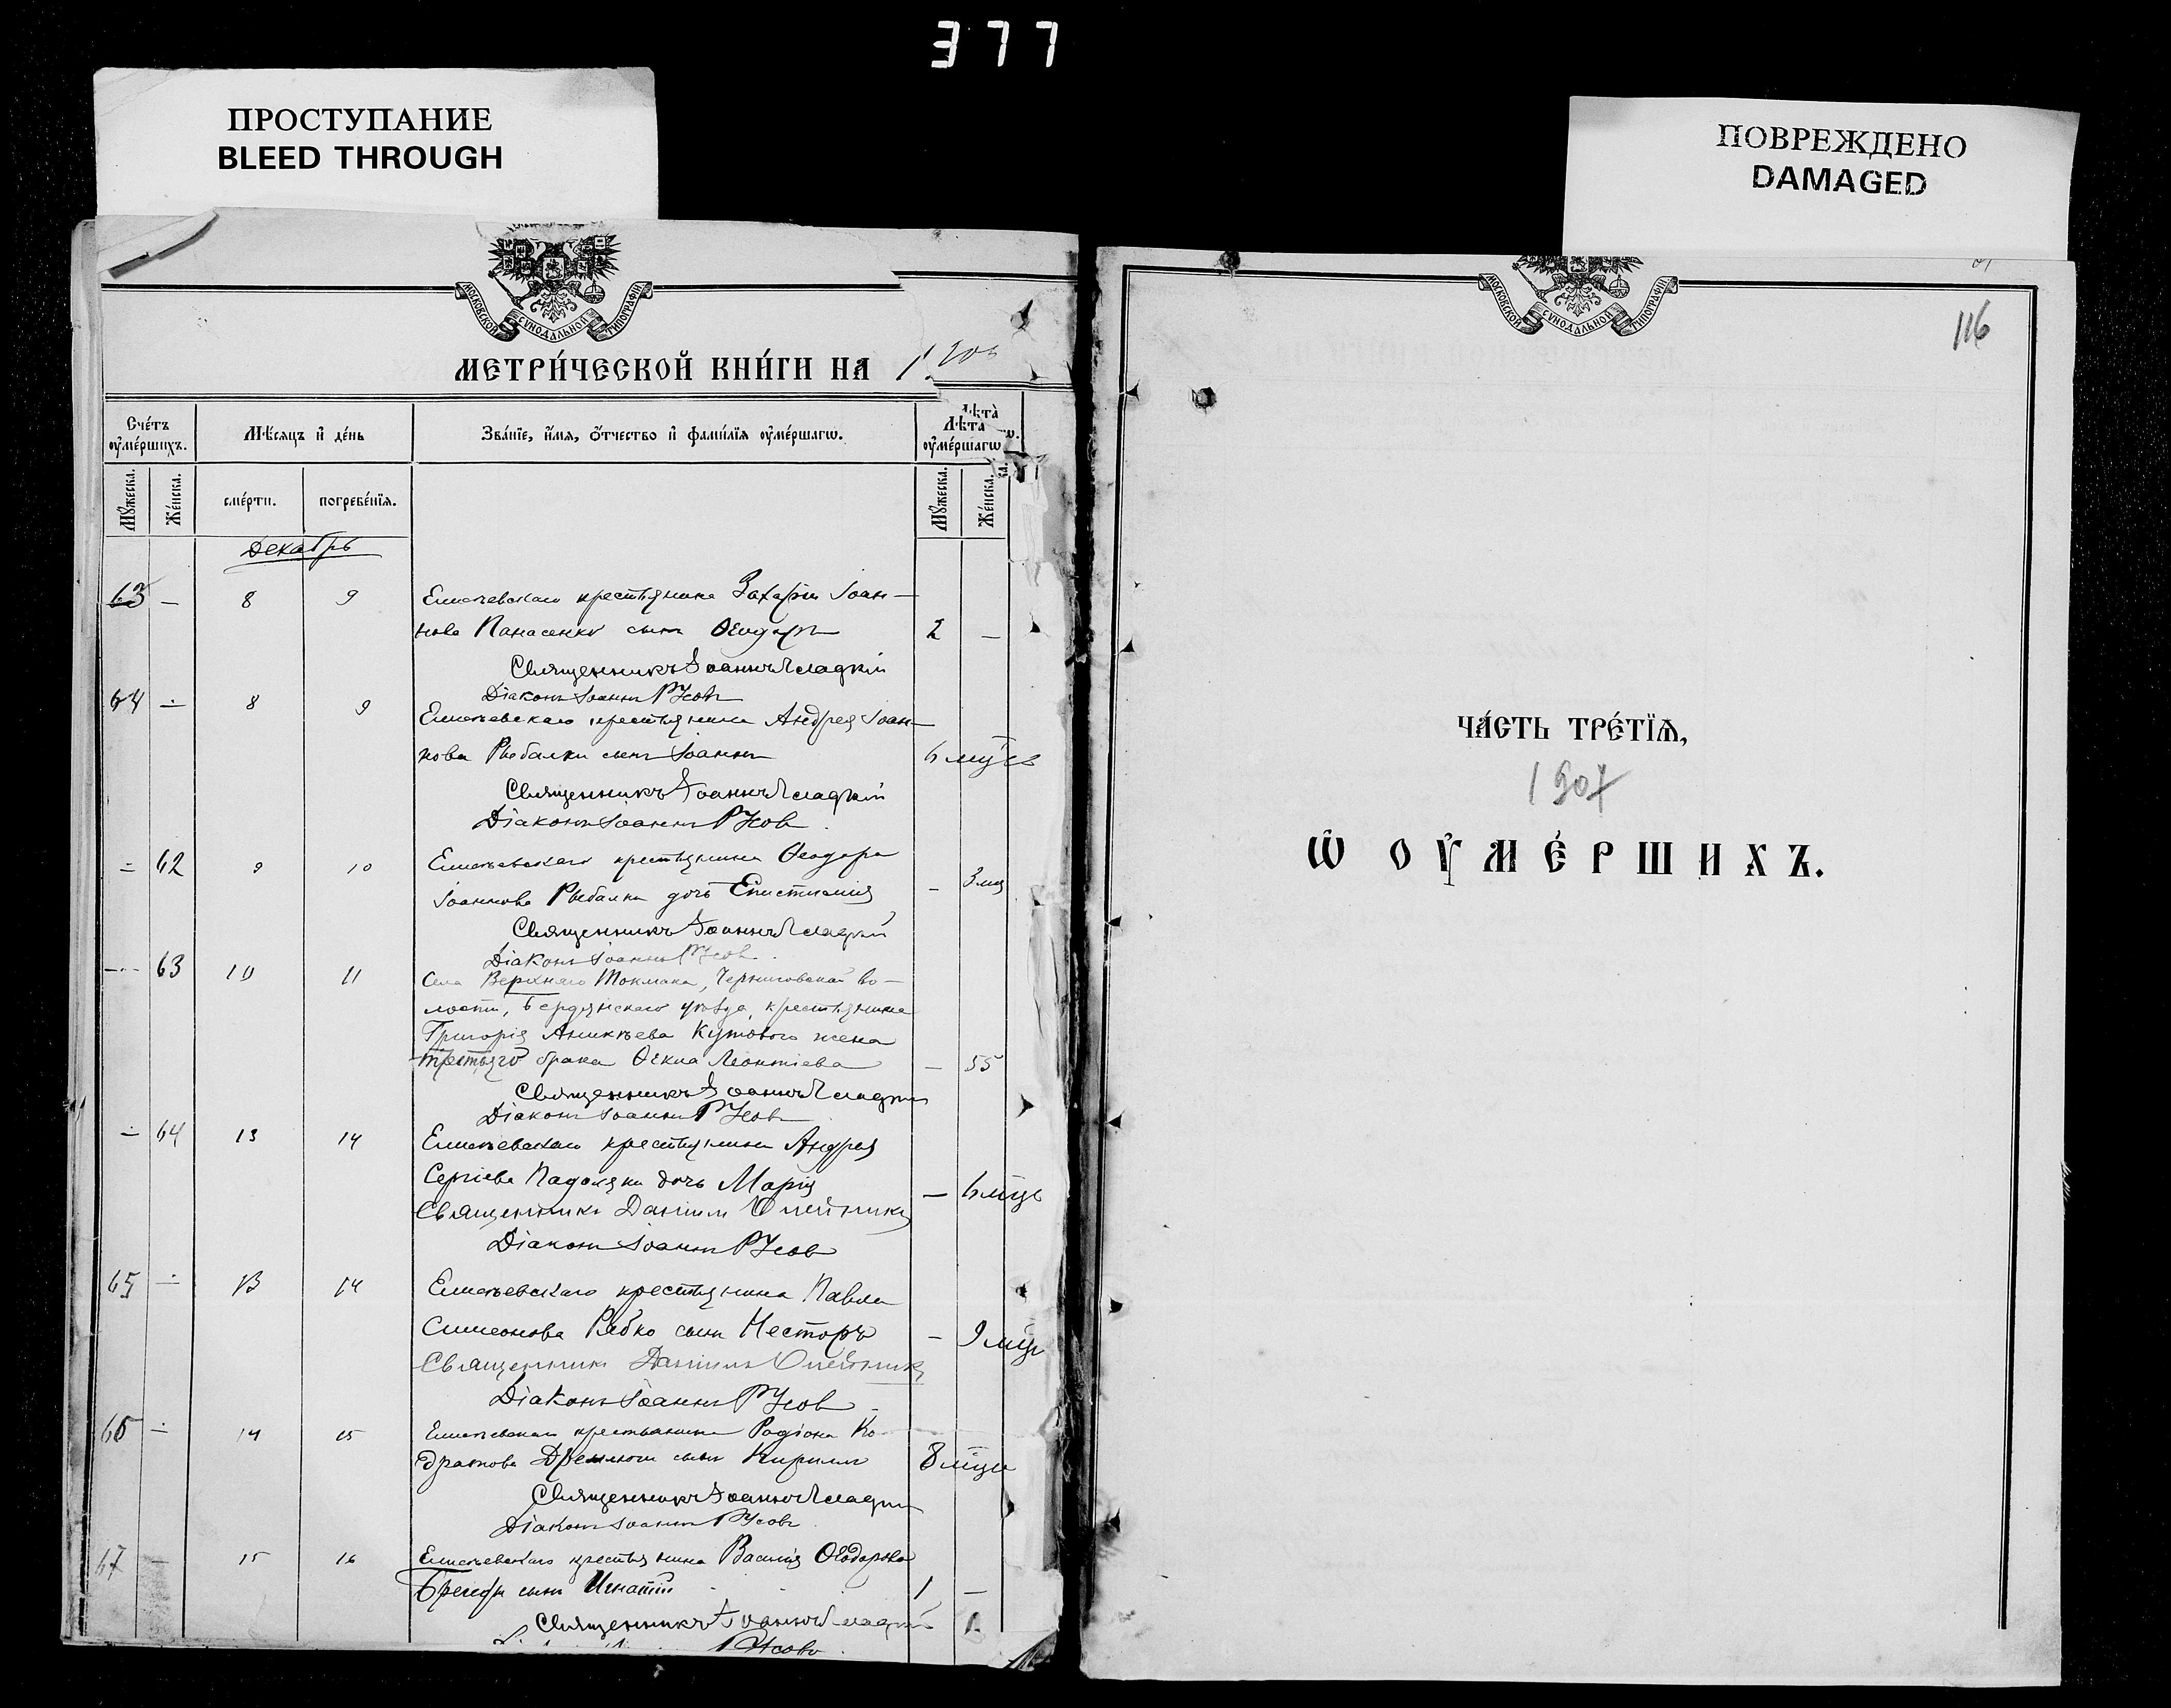 377
ПРОСТУПАНИЕ
BLEED THROUGH
ПОВРЕЖДЕНО
DAMAGED
МОСКОВСКОЙ СѴНОДАЛЬНОЙ ТИПОГРАФІИ
МЕТРИ́ЧЕСКОЙ КНИ́ГИ НА
Сче́тъ оу҆ме́ршихъ.
Мѣ́сяцъ и҆ де́нь
Зва́нїе, и҆́мя, ѻ҆́тчество и҆ фами́лїя оу҆ме́ршагѡ.
Лѣ̀та
Лѣ̀та оу҆ме́ршагѡ
Мꙋ́жеска.
Же́нска.
сме́рти.
погребе́нїя.
Мꙋ́жеска.
Же́нска.
Декабрь
63 — 8 9 Елисеевскаго крестьянина Захарія Іоан-
нова Панасенко сынъ Ѳеодоръ 2 —
Священникъ Іоаннъ Гладкій
Діаконъ Іоаннъ Русовъ
64 — 8 9 Елисеевскаго крестьянина Андрея Іоан-
нова Рыбалки сынъ Іоаннъ 6 мцев
Священникъ Іоаннъ Гладкій
Діаконъ Іоаннъ Русовъ
— 62 9 10 Елисеевскаго крестьянина Ѳеодора
Іоаннова Рыбалки дочь Епистимія — 3 мца
Священникъ Іоаннъ Гладкій
Діаконъ Іоаннъ Русовъ
— 63 10 11 Села Верхняго Токмака, Черниговской во-
лости, Бердянскаго уѣзда, крестьянина
Григорія Аникѣева Кутового жена
третьяго брака Ѳекла Леонтіева — 55
Священникъ Іоаннъ Гладкій
Діаконъ Іоаннъ Русовъ
— 64 13 14 Елисеевскаго крестьянина Андрея
Сергіева Падалки дочь Марія — 6 мцв
Священникъ Даніилъ Олейник
Діаконъ Іоаннъ Русовъ
65 — 13 14 Елисеевскаго крестьянина Павла
Симеонова Рябко сынъ Несторъ — 9 мцв
Священникъ Даніилъ Олейник
Діаконъ Іоаннъ Русовъ
66 — 14 15 Елисеевскаго крестьянина Родіона Ко-
дратова сынъ Кириллъ 8 мцв
Священникъ Іоаннъ Гладкій
Діаконъ Іоаннъ Русовъ
67 — 15 16 Елисеевскаго крестьянина Василія Ѳеодорова
сынъ Игнатій 1 —
Священникъ Іоаннъ Гладкій
Русовъ
МОСКОВСКОЙ СѴНОДАЛЬНОЙ ТИПОГРАФІИ
116
ЧА́СТЬ ТРЕ́ТЇѦ,
1907
Ѿ ОУ҆МЕ́РШИХЪ.